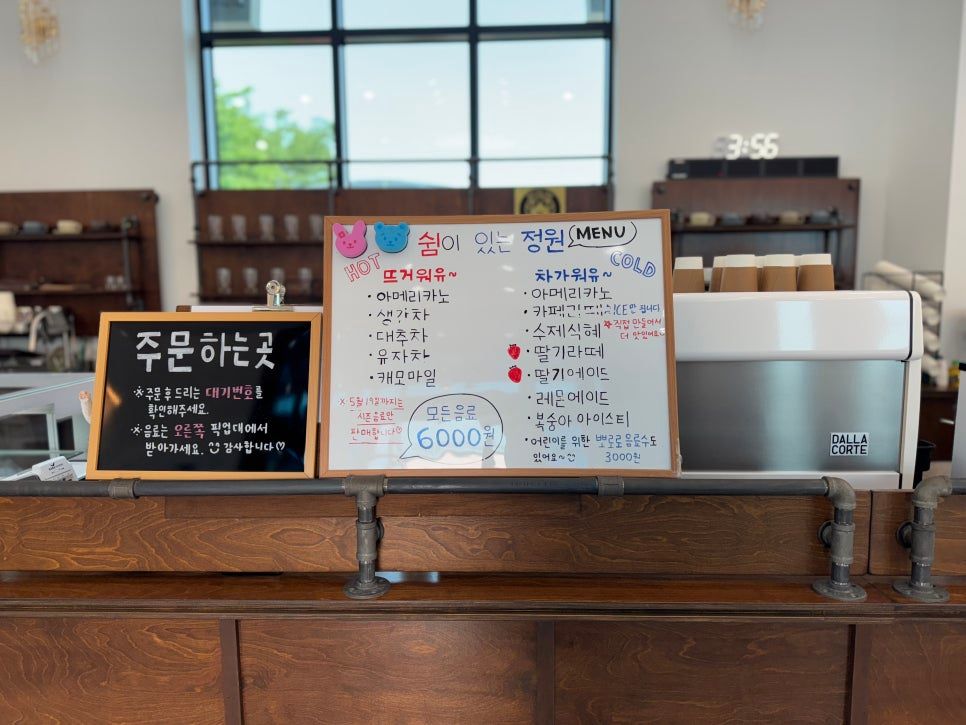 3:56
쉼이 있는 정원 MENU
HOT
COLD
뜨거워유~
· 아메리카노
· 생강차
· 대추차
· 유자차
· 캐모마일
※ 5월 19일까지는
시즌음료만
판매합니다
모든음료
6000원
차가워유~
· 아메리카노
· 카페라떼 ICE만 됩니다
· 수제식혜 ☆직접 만들어서
더 맛있어요
· 딸기라떼
· 딸기에이드
· 레몬에이드
· 복숭아 아이스티
· 어린이를 위한 뽀로로 음료수도
있어요~ 3000원
주문하는곳
※ 주문 후 드리는 대기번호를
확인해주세요.
※ 음료는 오른쪽 픽업대에서
받아가세요. 감사합니다♡
DALLA
CORTE